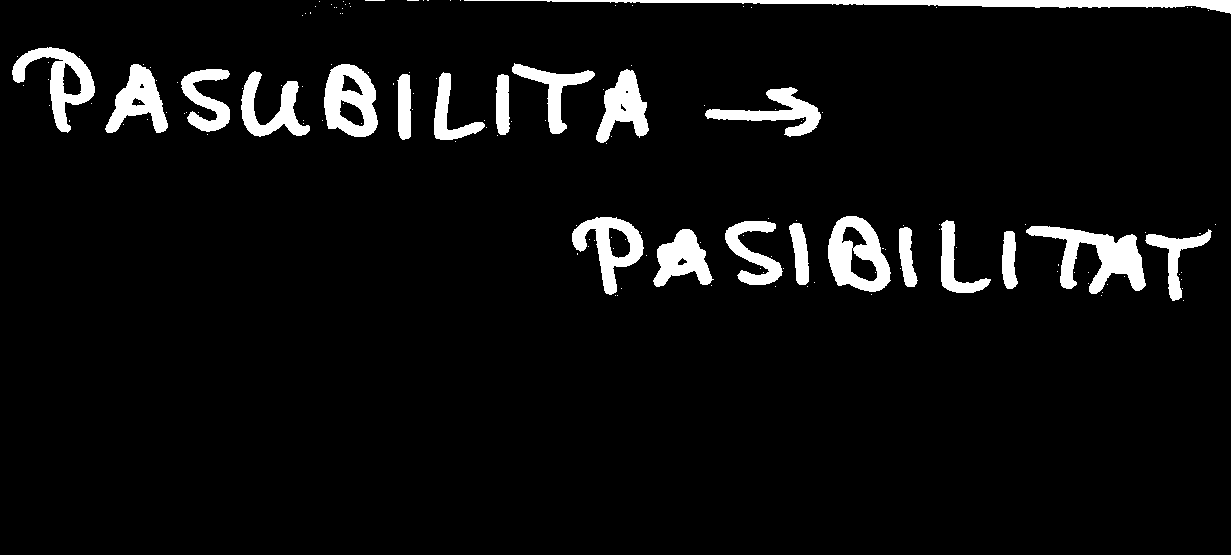 PASUBILITA →
PASIBILITAT